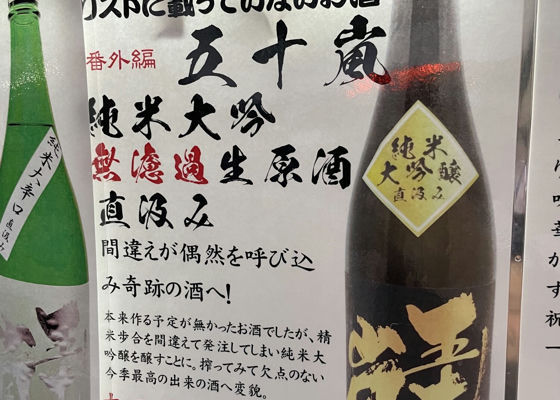 リストに載っていないお酒
番外編 五十嵐
純米大吟
無濾過生原酒
直汲み
間違えが偶然を呼び込
み奇跡の酒へ!
本来作る予定が無かったお酒でしたが、精
米歩合を間違えて発注してしまい純米大
吟醸を醸すことに。搾ってみて欠点のない
今季最高の出来の酒へ変貌。
純米大辛口 直汲み
純米
大吟醸
直汲み
五十
嵐